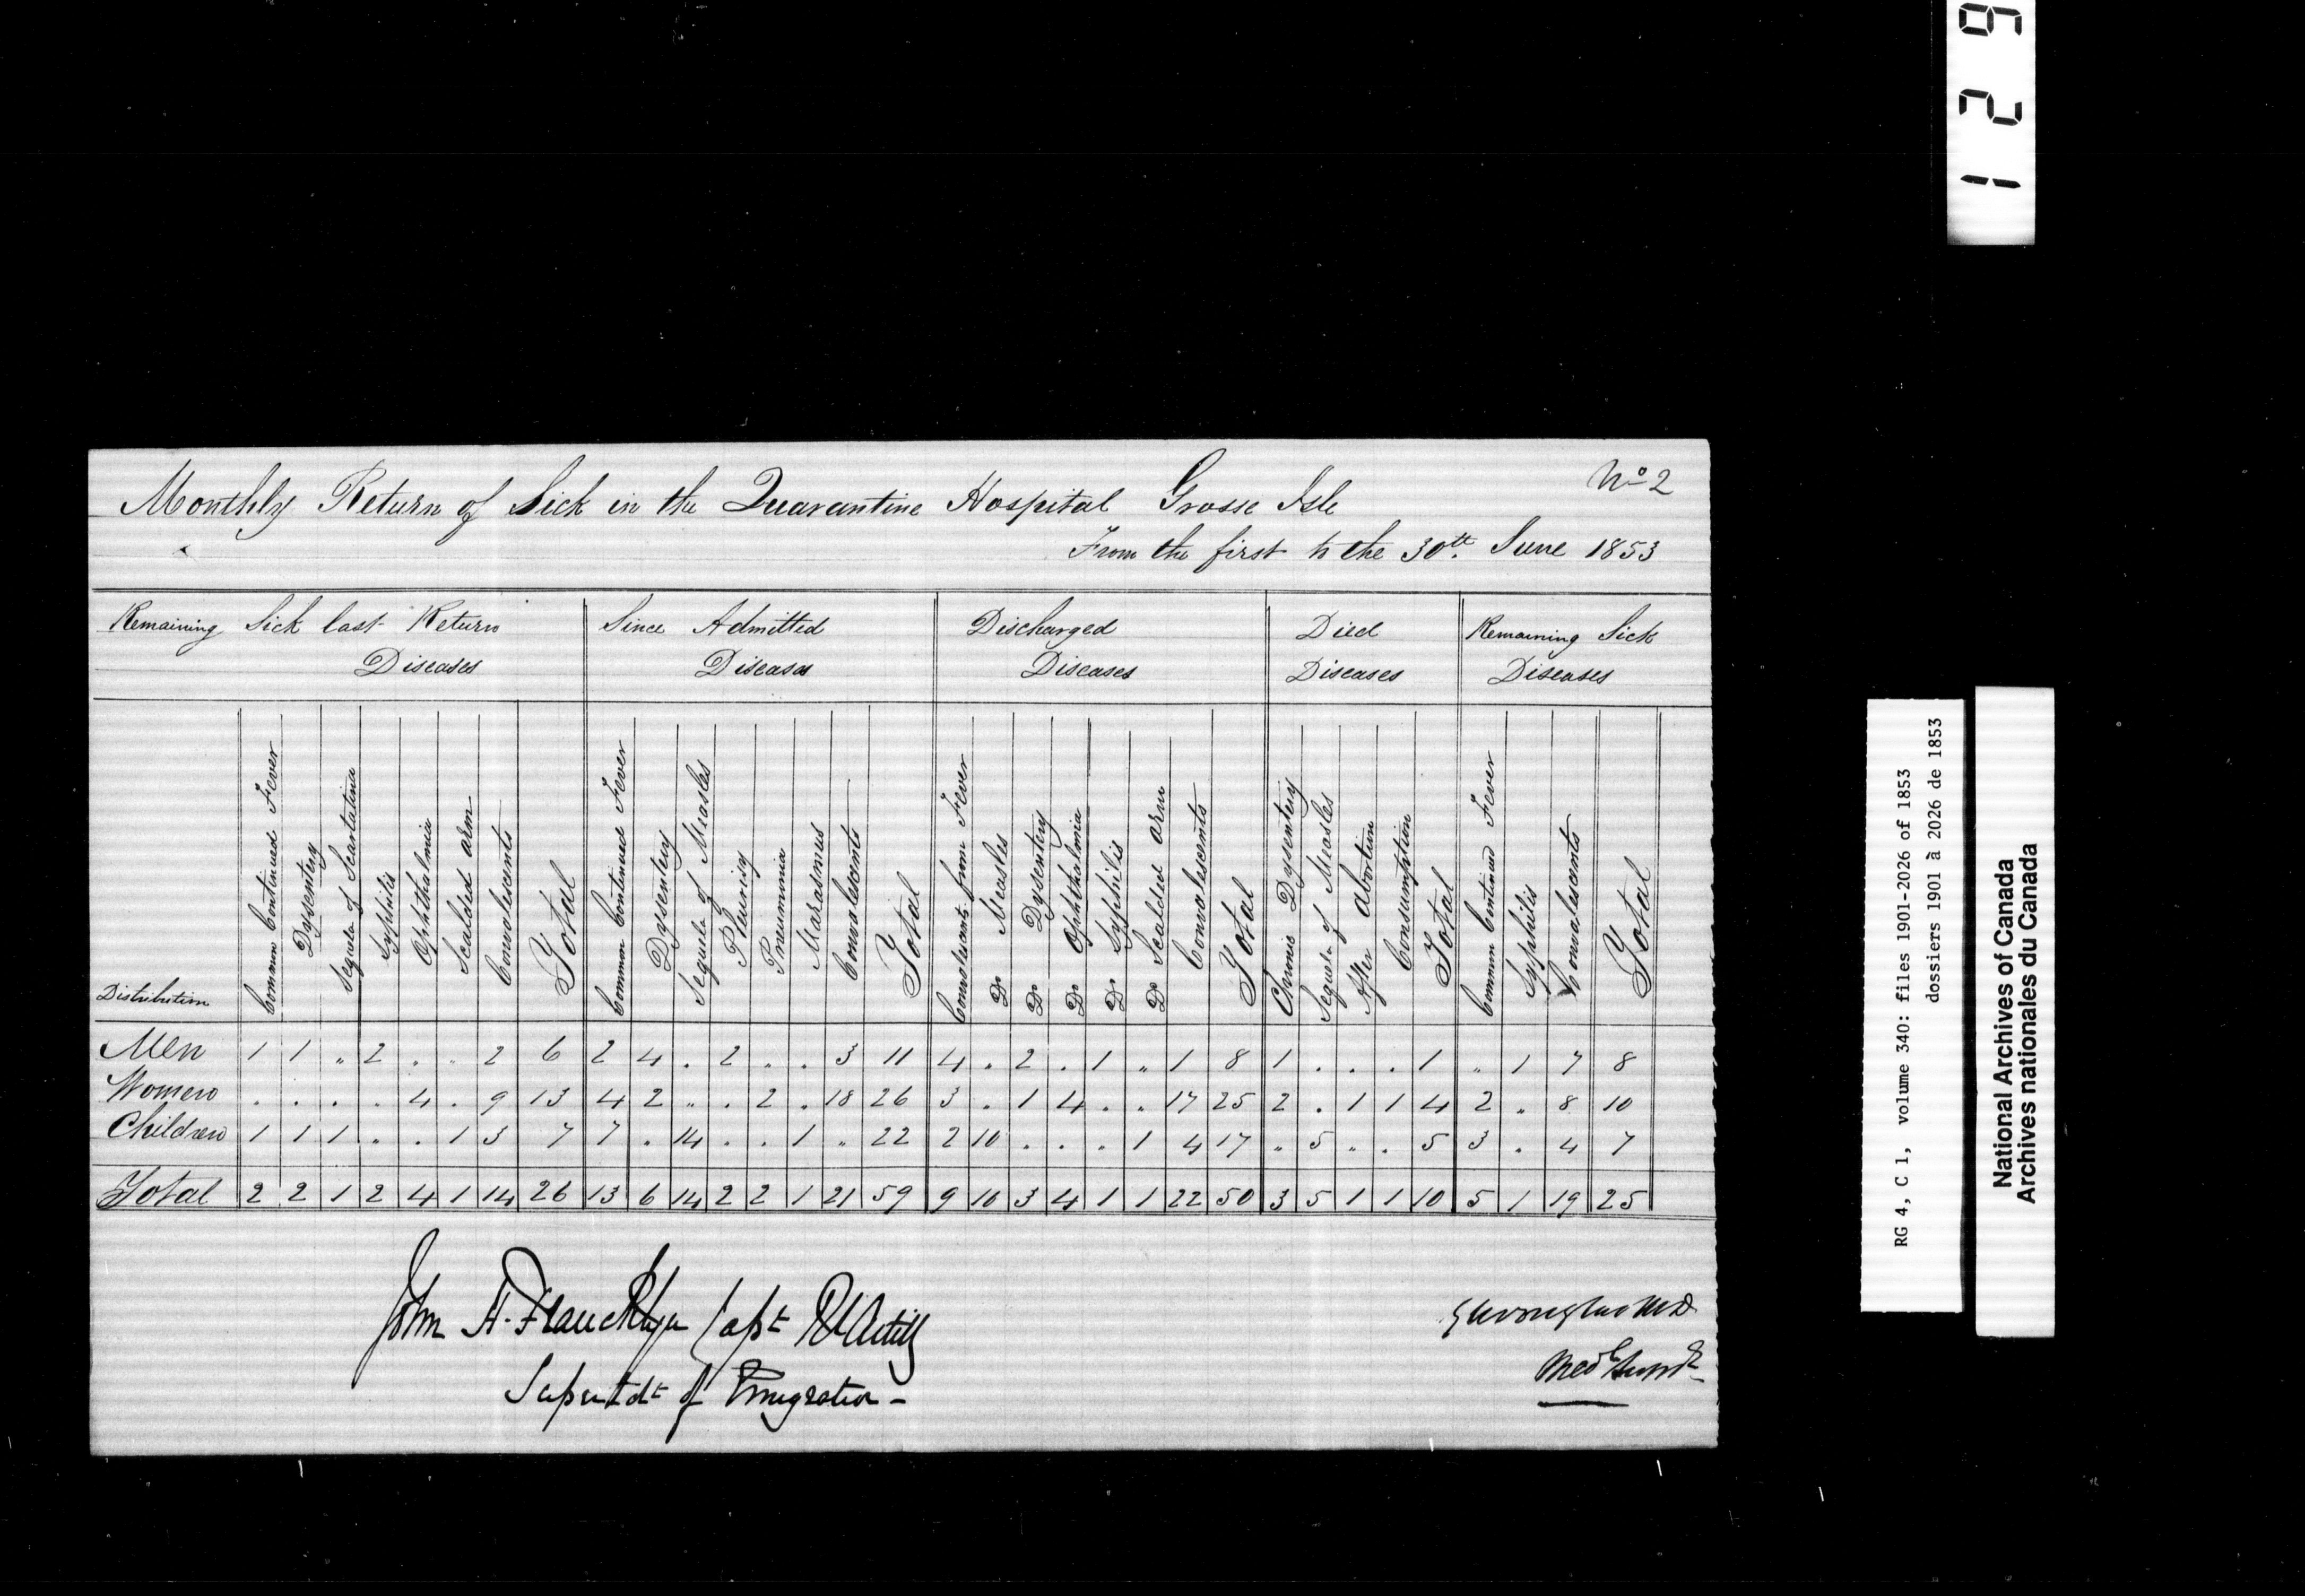 129
Nº 2
Monthly Return of Sick in the Quarantine Hospital Grosse Isle
From the first to the 30th. June 1853
Remaining Sick last Return Diseases | Since Admitted Diseases | Discharged Diseases | Died Diseases | Remaining Sick Diseases
Distribution | Common Continued Fever | Dysentery | Sequela of Scarlatina | Syphilis | Ophthalmia | Scalded arm | Convalescents | Total | Common Continued Fever | Dysentery | Sequela of Measles | Pleurisy | Pneumonia | Marasmus | Convalescents | Total | Convalescents from Fever | Do Measles | Do Dysentery | Do Ophthalmia | Do Syphilis | Do Scalded arm | Convalescents | Total | Chronic Dysentery | Sequela of Measles | After Abortion | Consumption | Total | Common Continued Fever | Syphilis | Convalescents | Total
Men | 1 | 1 | " | 2 | . | . | 2 | 6 | 2 | 4 | . | 2 | . | . | 3 | 11 | 4 | . | 2 | . | 1 | " | 1 | 8 | 1 | . | . | . | 1 | " | 1 | 7 | 8
Women | . | . | . | . | 4 | . | 9 | 13 | 4 | 2 | " | . | 2 | . | 18 | 26 | 3 | . | 1 | 4 | . | . | 17 | 25 | 2 | . | 1 | 1 | 4 | 2 | " | 8 | 10
Children | 1 | 1 | 1 | . | . | 1 | 3 | 7 | 7 | . | 14 | . | . | 1 | " | 22 | 2 | 10 | . | . | . | 1 | 4 | 17 | " | 5 | " | . | 5 | 3 | . | 4 | 7
Total | 2 | 2 | 1 | 2 | 4 | 1 | 14 | 26 | 13 | 6 | 14 | 2 | 2 | 1 | 21 | 59 | 9 | 10 | 3 | 4 | 1 | 1 | 22 | 50 | 3 | 5 | 1 | 1 | 10 | 5 | 1 | 19 | 25
John A. Francklyn Capt Rl Artilly
Superintdt of Emigration -
MD
Medl Supdt
RG 4, C 1, volume 340: files 1901-2026 of 1853
dossiers 1901 à 2026 de 1853
National Archives of Canada
Archives nationales du Canada